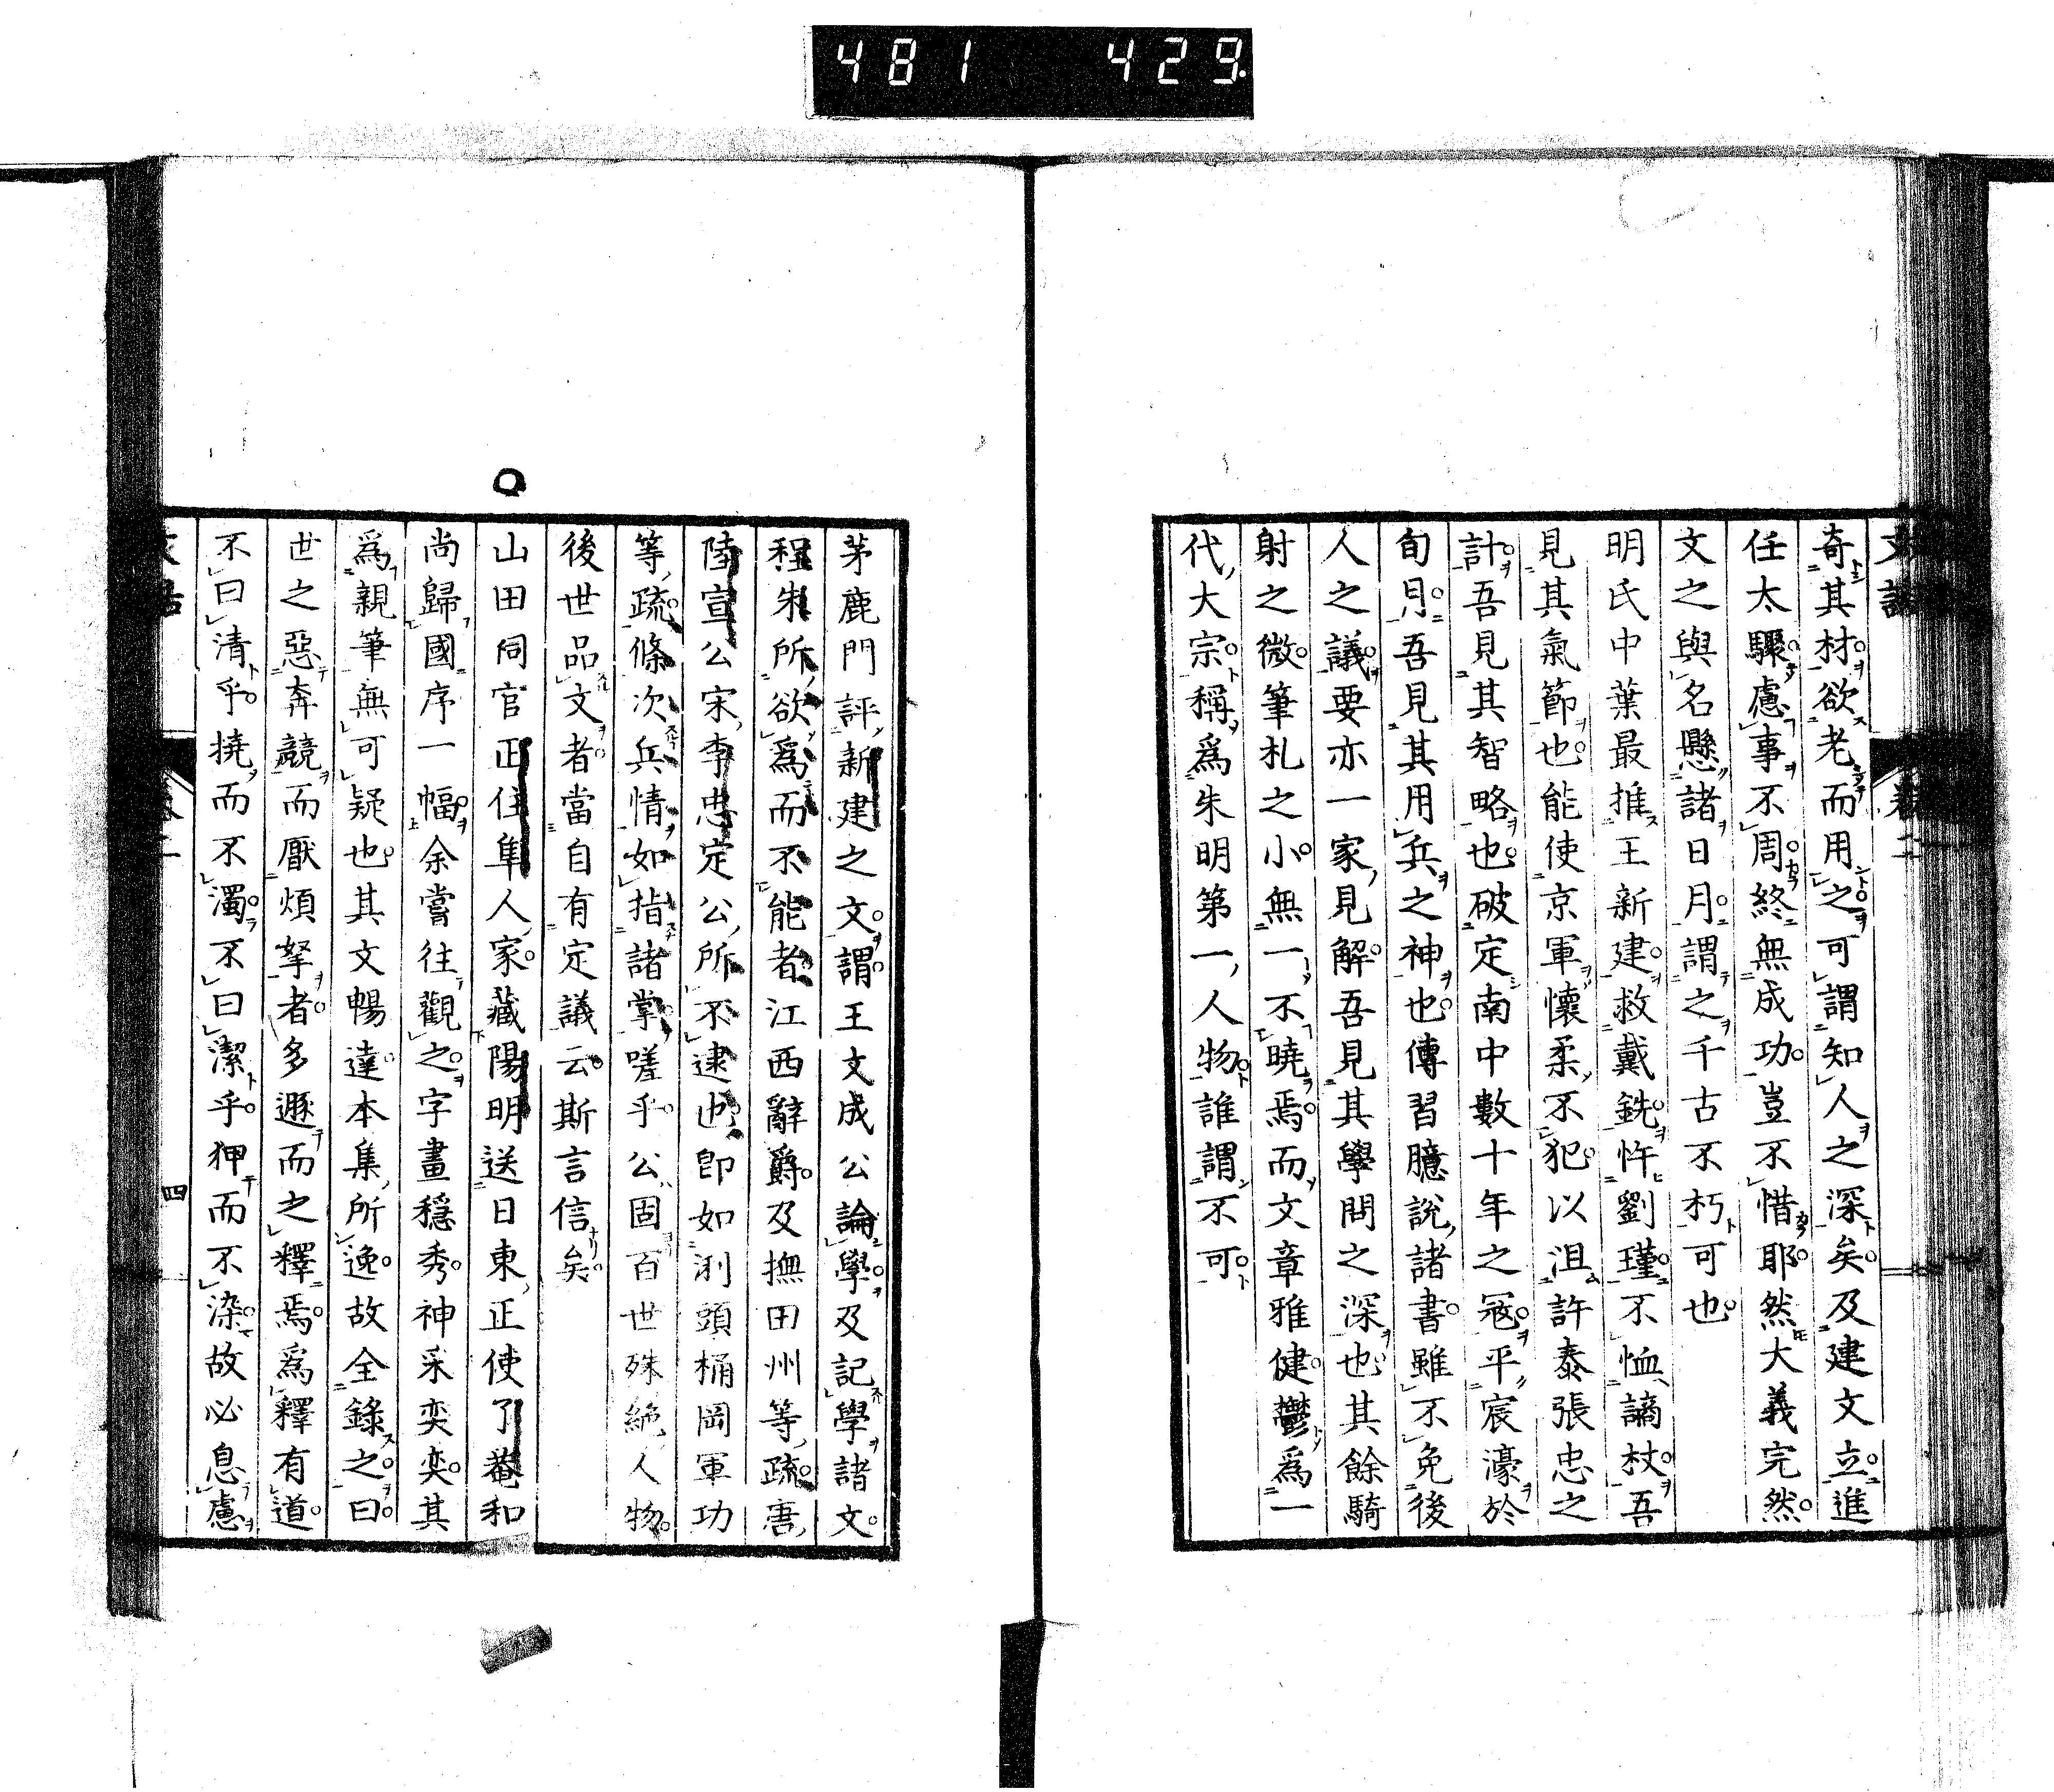 481 429
文話 卷二
奇其材欲老而用之可謂知人之深矣及建文立進
任太驟慮事不周終無成功豈不惜耶然大義完然
文之與名懸諸日月謂之千古不朽可也
明氏中葉最推王新建救戴銑忤劉瑾不恤謫杖吾
見其氣節也能使京軍懷柔不犯以沮許泰張忠之
計吾見其智略也破定南中數十年之寇平宸濠於
旬月吾見其用兵之神也傳習臆說諸書雖不免後
人之議要亦一家見解吾見其學問之深也其餘騎
射之微筆札之小無一不曉焉而文章雅健鬱爲一
代大宗稱爲朱明第一人物誰謂不可
茅鹿門評新建之文謂王文成公論學及記學諸文
程朱所欲爲而不能者江西辭爵及撫田州等疏唐
陸宣公宋李忠定公所不逮也卽如浰頭桶岡軍功
等疏條次兵情如指諸掌嗟乎公固百世殊絶人物
後世品文者當自有定議云斯言信矣
山田祠官正住隼人家藏陽明送日東正使了菴和
尚歸國序一幅余嘗往觀之字畫穩秀神采奕奕其
爲親筆無可疑也其文暢達本集所逸故全錄之曰
世之惡奔競而厭煩拏者多遯而之釋焉爲釋有道
不曰清乎撓而不濁不曰潔乎狎而不染故必息慮
四